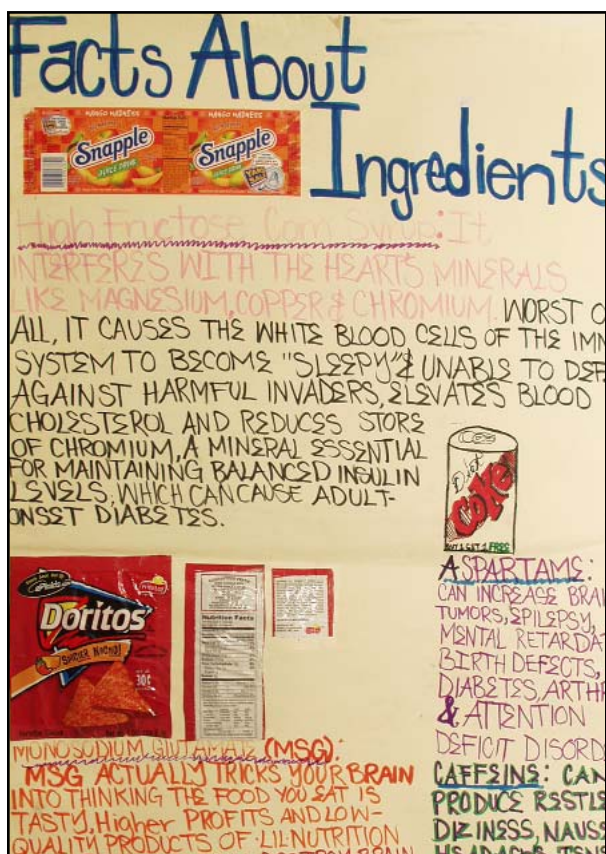 Facts About
Ingredients
MANGO MADNESS
MANGO MADNESS
Snapple
Snapple
JUICE DRINK
High Fructose Corn Syrup: It
INTERFERES WITH THE HEARTS MINERALS
LIKE MAGNESIUM, COPPER & CHROMIUM. WORST O
ALL, IT CAUSES THE WHITE BLOOD CELLS OF THE IMM
SYSTEM TO BECOME "SLEEPY" & UNABLE TO DEF
AGAINST HARMFUL INVADERS, ELEVATES BLOOD
CHOLESTEROL AND REDUCES STORE
OF CHROMIUM, A MINERAL ESSENTIAL
FOR MAINTAINING BALANCED INSULIN
LEVELS. WHICH CAN CAUSE ADULT-
ONSET DIABETES.
Diet
Coke
BUY 1 GET 1 FREE
Doritos
SPICIER NACHO!
30¢
Nutrition Facts
ASPARTAME:
CAN INCREASE BRAI
TUMORS, EPILEPSY,
MENTAL RETARDA
BIRTH DEFECTS,
DIABETES, ARTHR
& ATTENTION
DEFICIT DISORD
CAFFEINE: CAN
PRODUCE RESTLE
DIZINESS, NAUS
MONOSODIUM GLUTAMATE (MSG):
MSG ACTUALLY TRICKS YOUR BRAIN
INTO THINKING THE FOOD YOU EAT IS
TASTY, Higher PROFITS AND LOW-
QUALITY PRODUCTS OF LIL NUTRITION